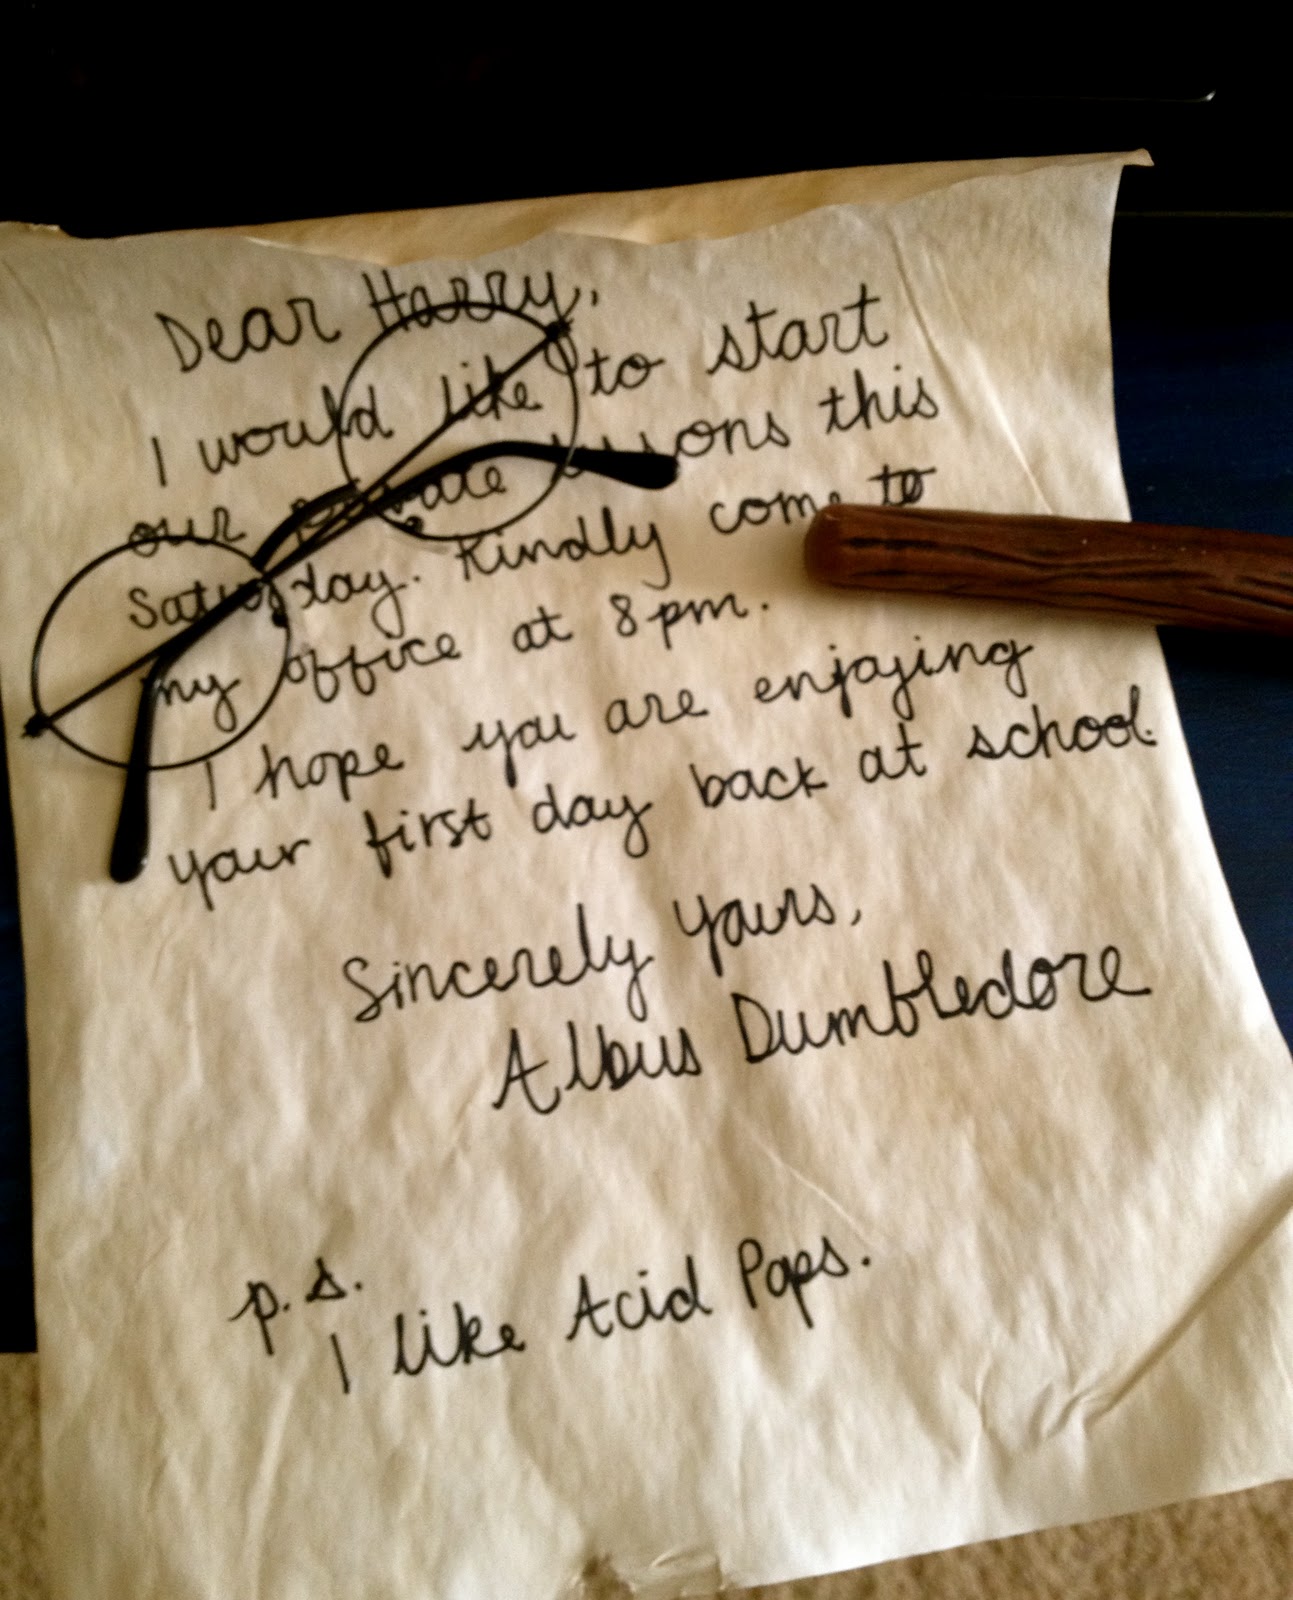 Dear Harry,
I would like to start
our private lessons this
Saturday. Kindly come to
my office at 8pm.
I hope you are enjoying
your first day back at school.
Sincerely yours,
Albus Dumbledore
p.s.
I like Acid Pops.